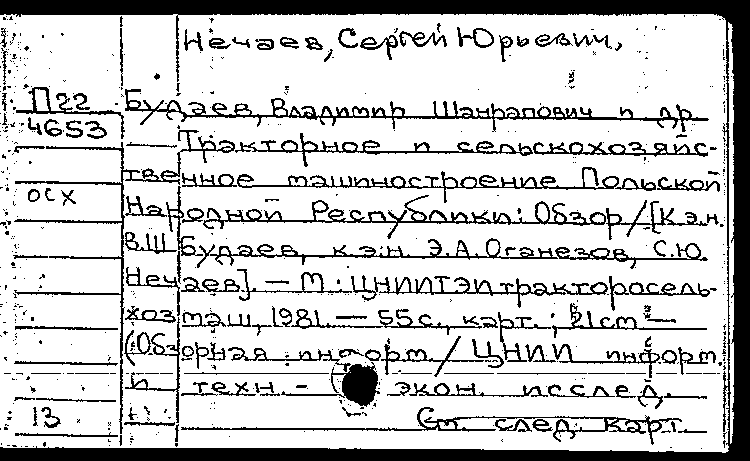 Нечаев, Сергей Юрьевич,
П22 Будаев, Владимир Шанрапович и др
4653 Тракторное и сельскохозяйс-
твенное машиностроение Польской
осх Народной Республики: Обзор / [К.э.н.
В.Ш Будаев, к.э.н. Э.А. Оганезов, С.Ю.
Нечаев]. — М : ЦНИИТЭИтракторосель-
хозмаш, 1981. — 55 с., карт. ; 21 см —
(Обзорная информ. / ЦНИИ информ.
и техн. - экон. исслед.
13 См. след. карт.